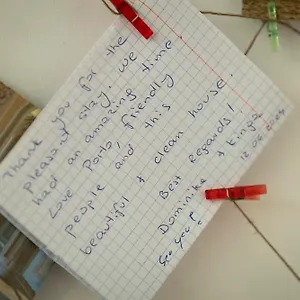 Thank you for the
pleasant stay. We
had an amazing time
Love Porto, friendly
people and this
beautiful + clean house.
Best regards!
Dominika + Kinga